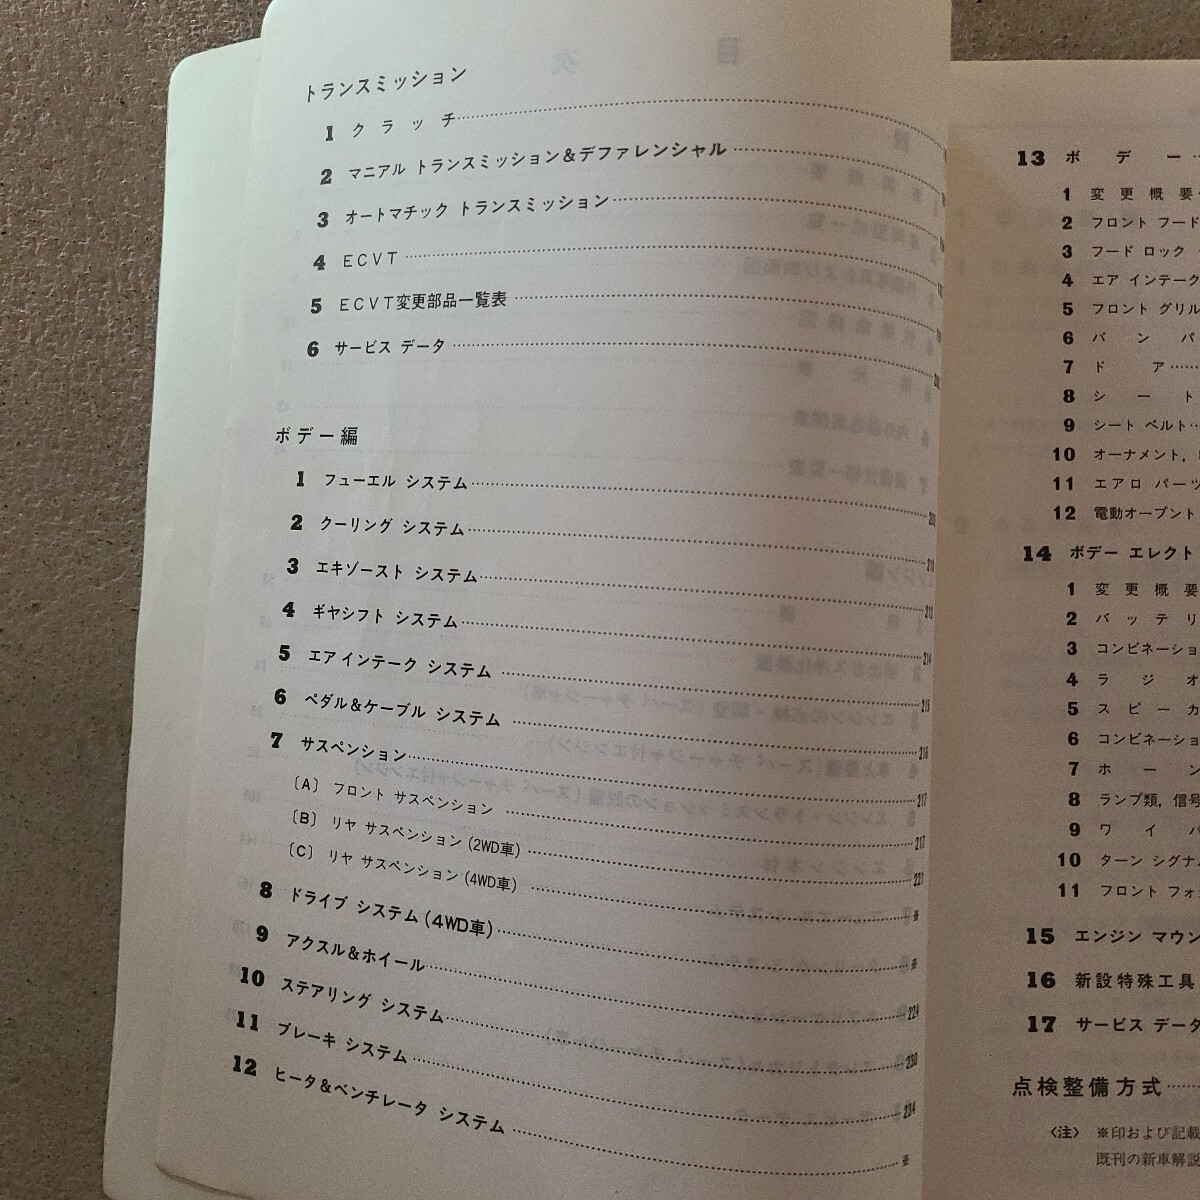 トランスミッション
1 クラッチ
2 マニアル トランスミッション＆デファレンシャル
3 オートマチック トランスミッション
4 ECVT
5 ECVT変更部品一覧表
6 サービス データ
ボデー編
1 フューエル システム
2 クーリング システム
3 エキゾースト システム
4 ギヤシフト システム 214
5 エアインテーク システム 215
6 ペダル＆ケーブル システム 216
7 サスペンション 217
〔A〕 フロント サスペンション 217
〔B〕 リヤ サスペンション (2WD車) 221
〔C〕 リヤ サスペンション (4WD車) ※
8 ドライブ システム (4WD車) ※
9 アクスル＆ホイール 224
10 ステアリング システム 230
11 ブレーキ システム 234
12 ヒータ＆ベンチレータ システム ※
13 ボデー
1 変更概要
2 フロント フード
3 フード ロック
4 エア インテーク
5 フロント グリル
6 バンパ
7 ドア
8 シート
9 シート ベルト
10 オーナメント,
11 エアロ パーツ
12 電動オープント
14 ボデー エレクト
1 変更概要
2 バッテリ
3 コンビネーショ
4 ラジオ
5 スピーカ
6 コンビネーショ
7 ホーン
8 ランプ類, 信号
9 ワイパ
10 ターン シグナル
11 フロント フォ
15 エンジン マウン
16 新設特殊工具
17 サービス データ
点検整備方式
〈注〉 ※印および記載
既刊の新車解説